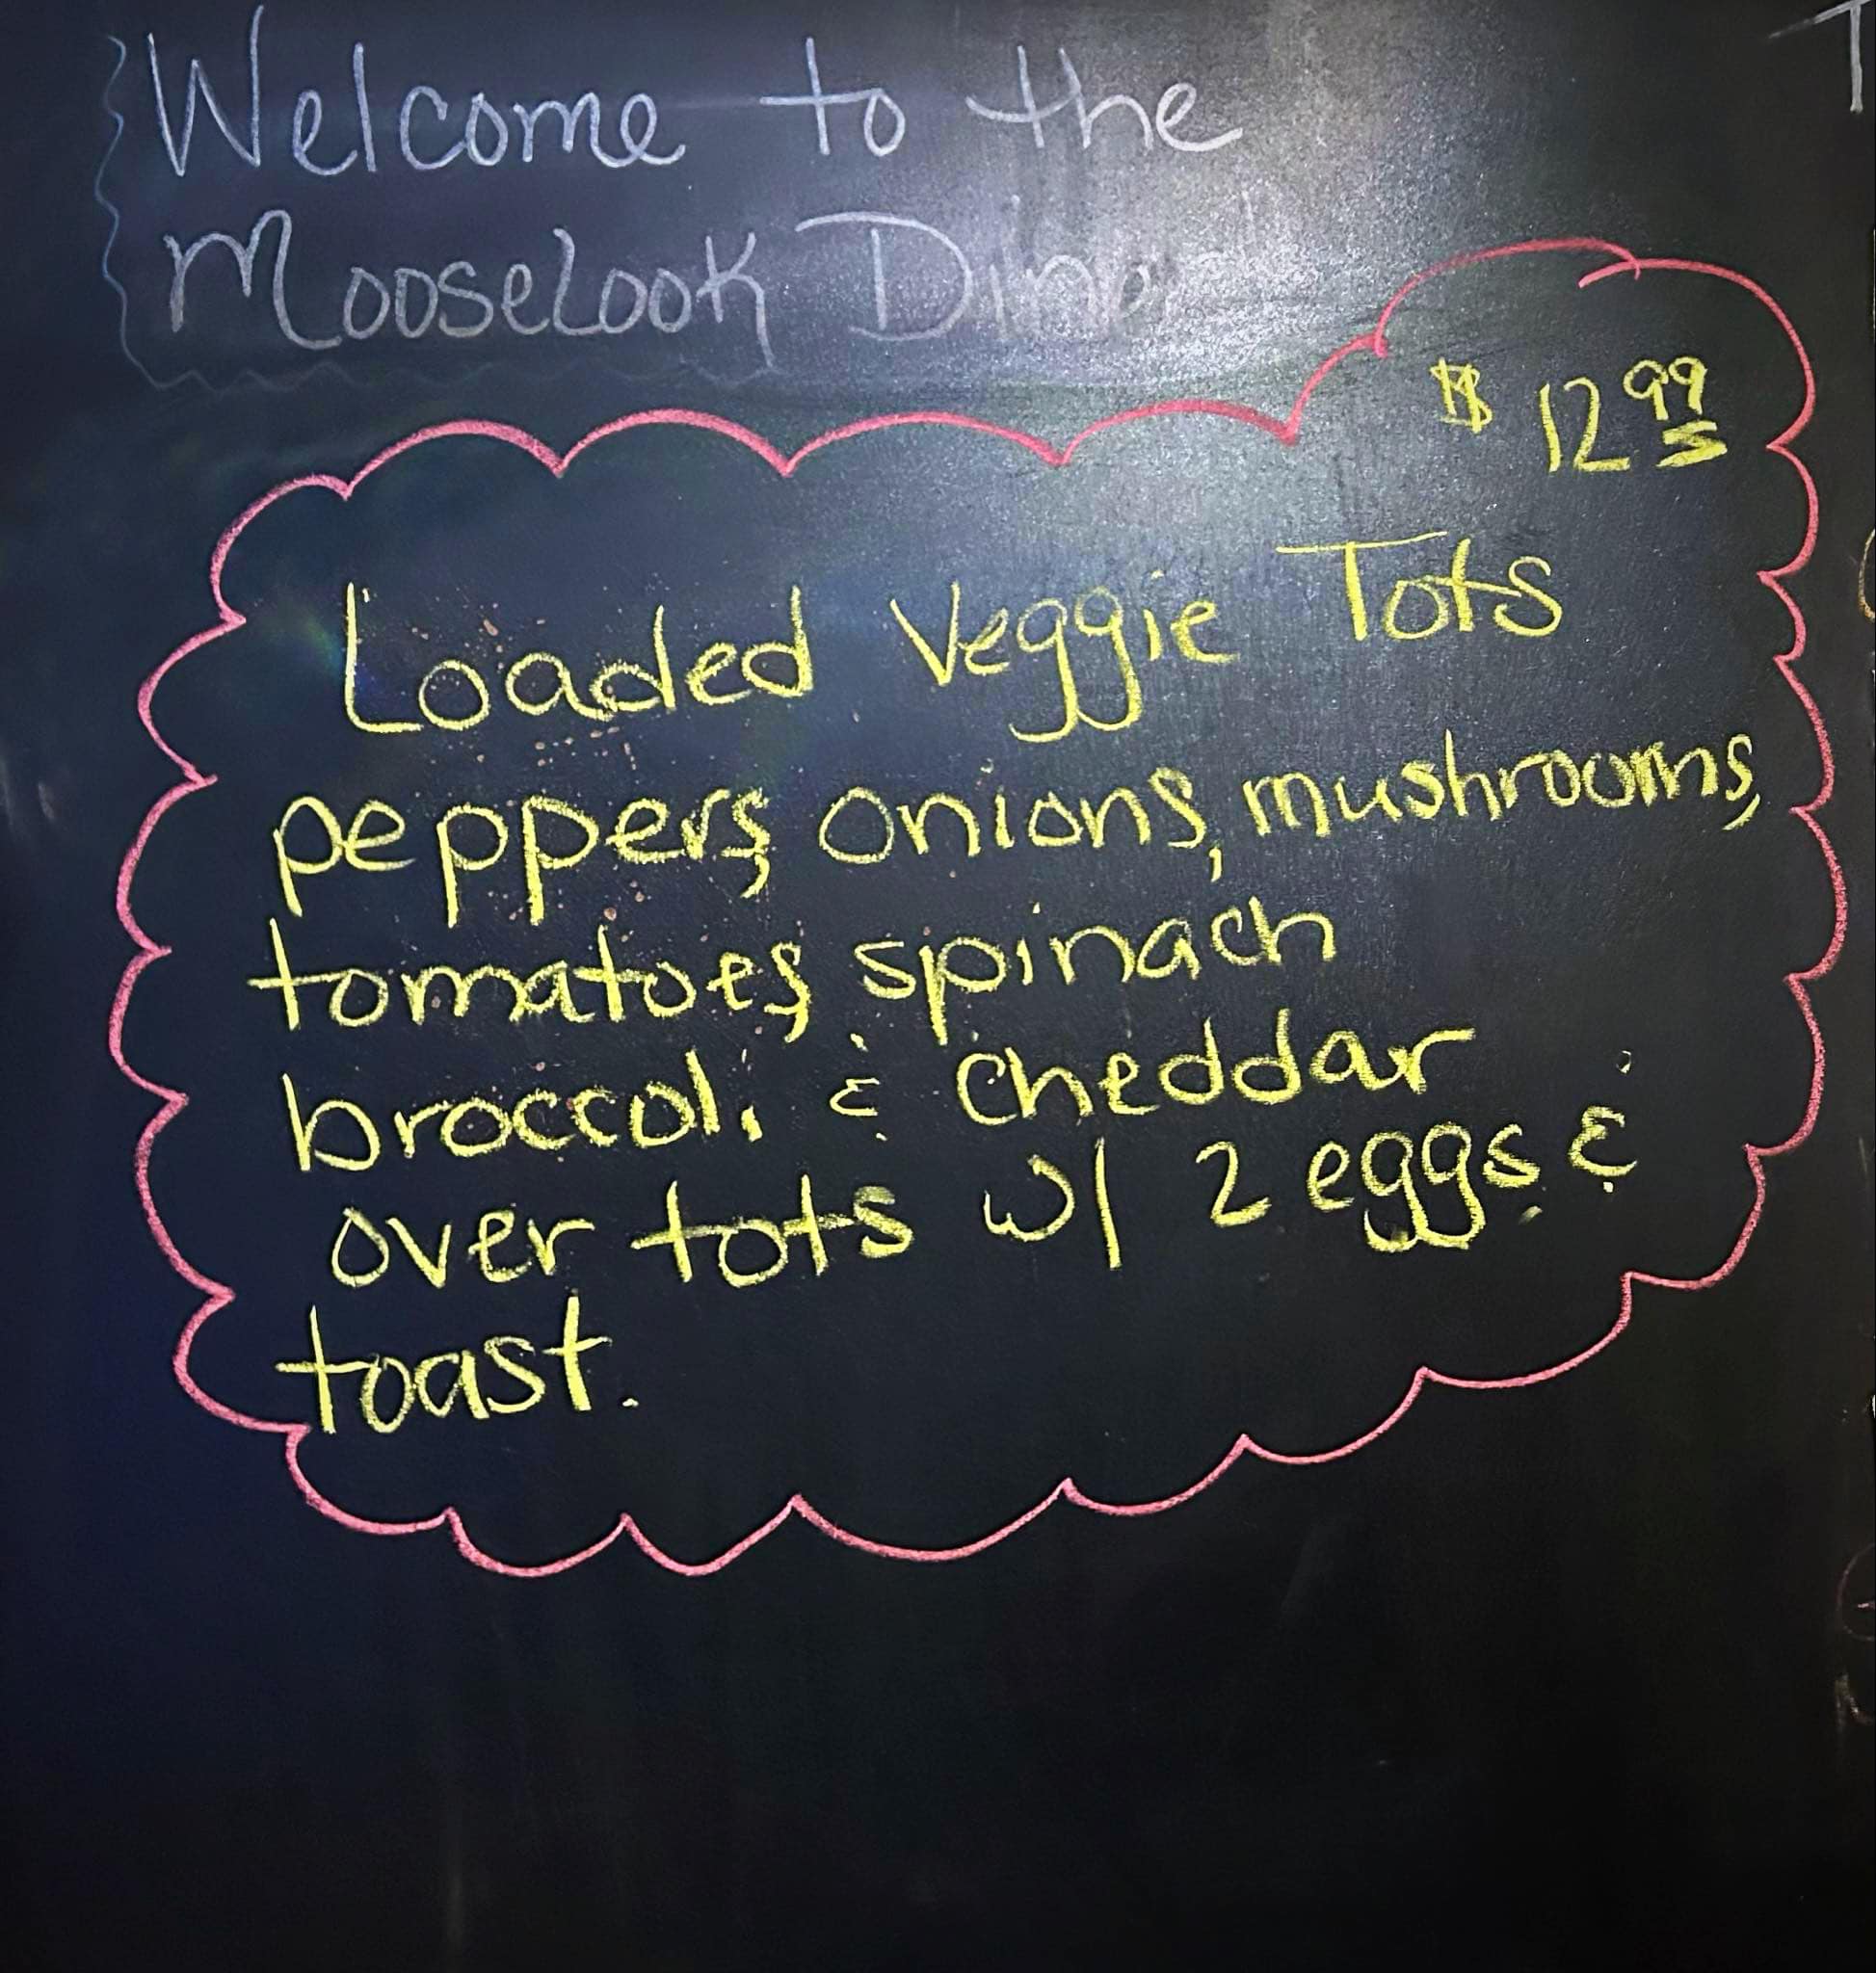 Welcome to the
MooseLook Diner
$ 12.99
Loaded Veggie Tots
peppers, onions, mushrooms,
tomatoes, spinach
broccoli & Cheddar
over tots w/ 2 eggs &
toast.